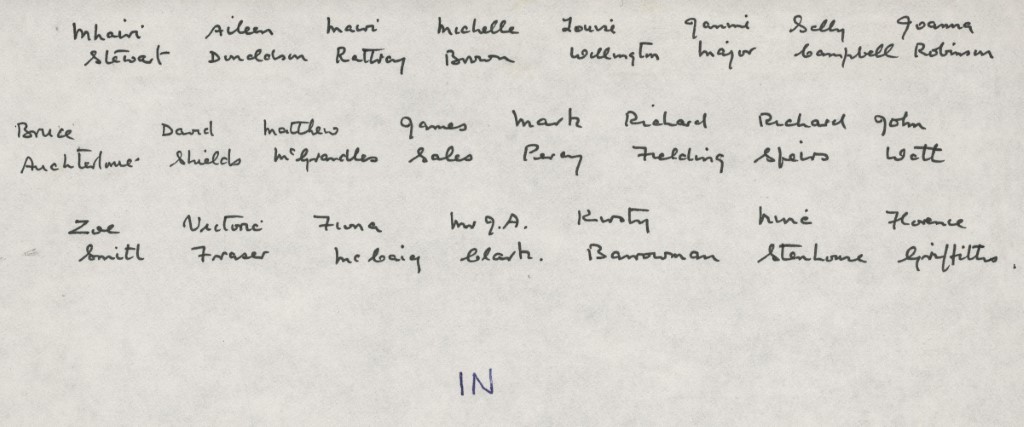 Mhairi Aileen Mairi Michelle Louise Sally Joanna
Stewart Donaldson Rattray Brown Wellington Major Campbell Robinson
Bruce David Matthew James Mark Richard Richard John
Auchterlonie Shields McGrandles Sales Percy Fielding Speirs Watt
Zoe Victoria Fiona Mr J.A. Kirsty Florence
Smith Fraser McCaig Clark. Barrowman Stenhouse Griffiths.
IN